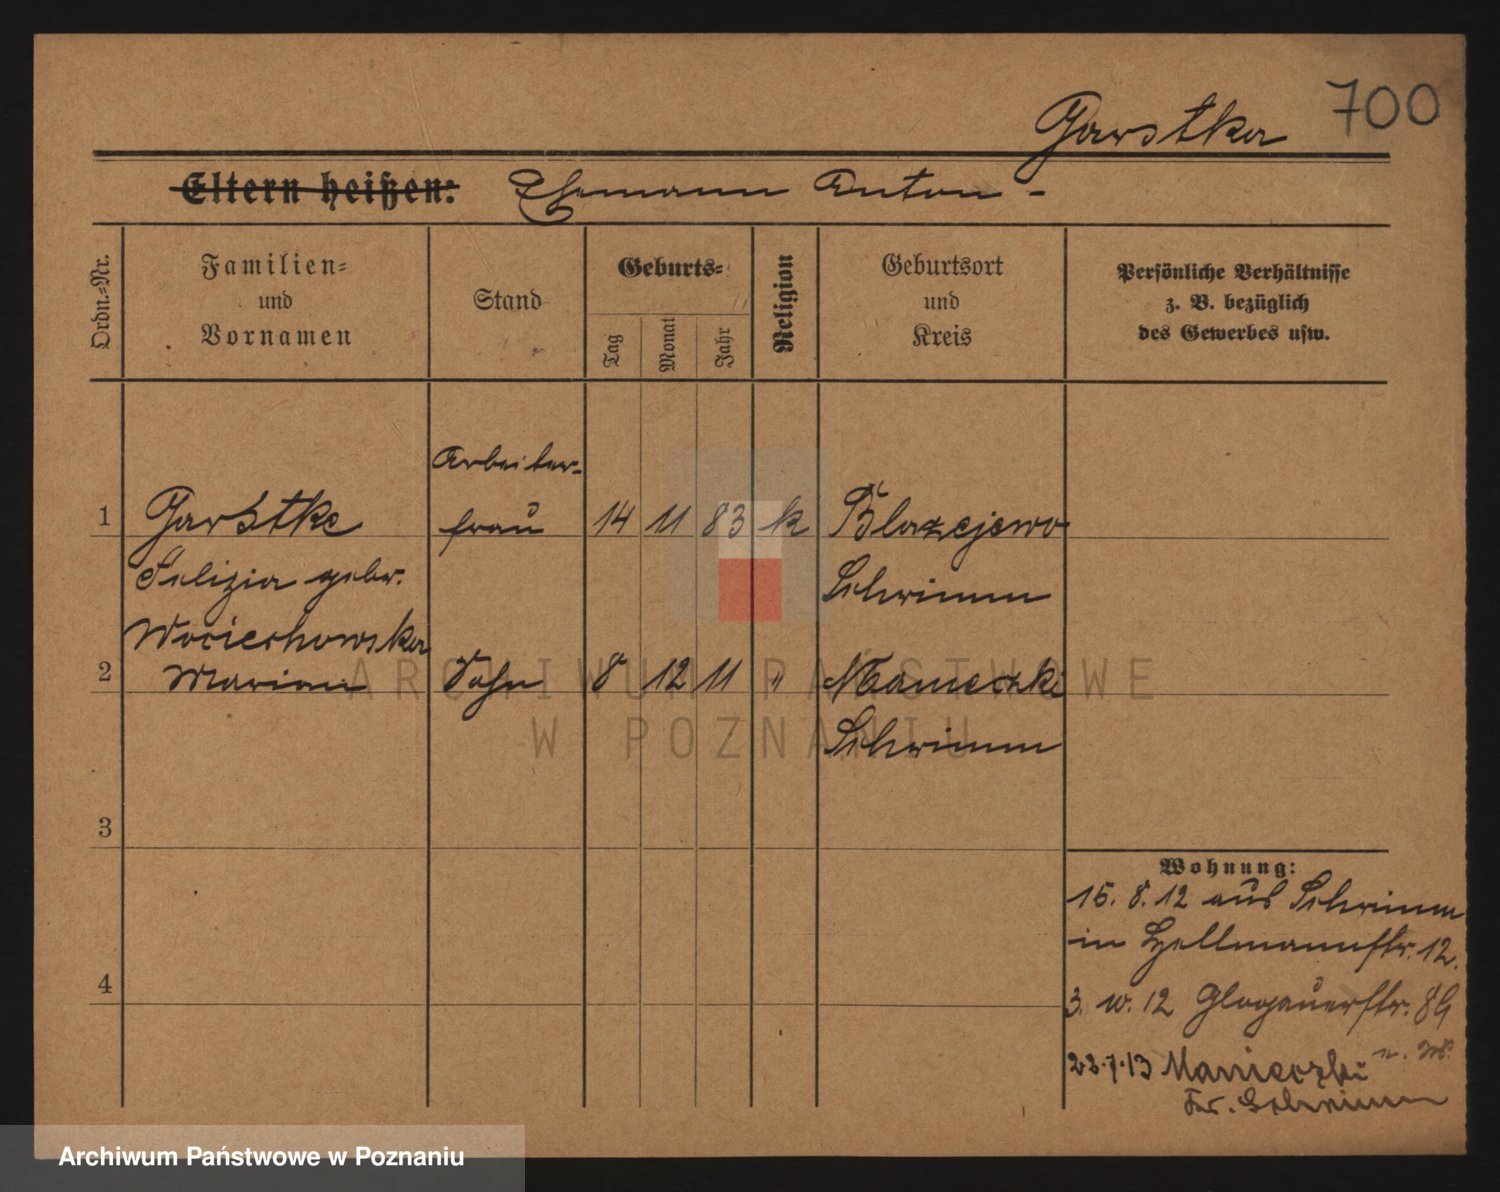 700
Garstka
Eltern heißen: Ehemann Anton -
Ordn.-Nr.
Familien-
und
Vornamen
Stand
Geburts-
Tag
Monat
Jahr
Religion
Geburtsort
und
Kreis
Persönliche Verhältnisse
z. B. bezüglich
des Gewerbes usw.
Arbeiter-
1 Garstke frau 14 11 83 k Blazejewo
Felizia gebr. Schrimm
Wociechowska
2 Marian Sohn 8 12 11 " Manieczki
Schrimm
3
4
Wohnung:
15. 8. 12 aus Schrimm
in Hellmannstr. 12.
3. 10. 12 Glogauerstr. 89
23.7.13 Manieczki
Kr. Schrimm
ARCHIWUM PAŃSTWOWE
W POZNANIU
Archiwum Państwowe w Poznaniu